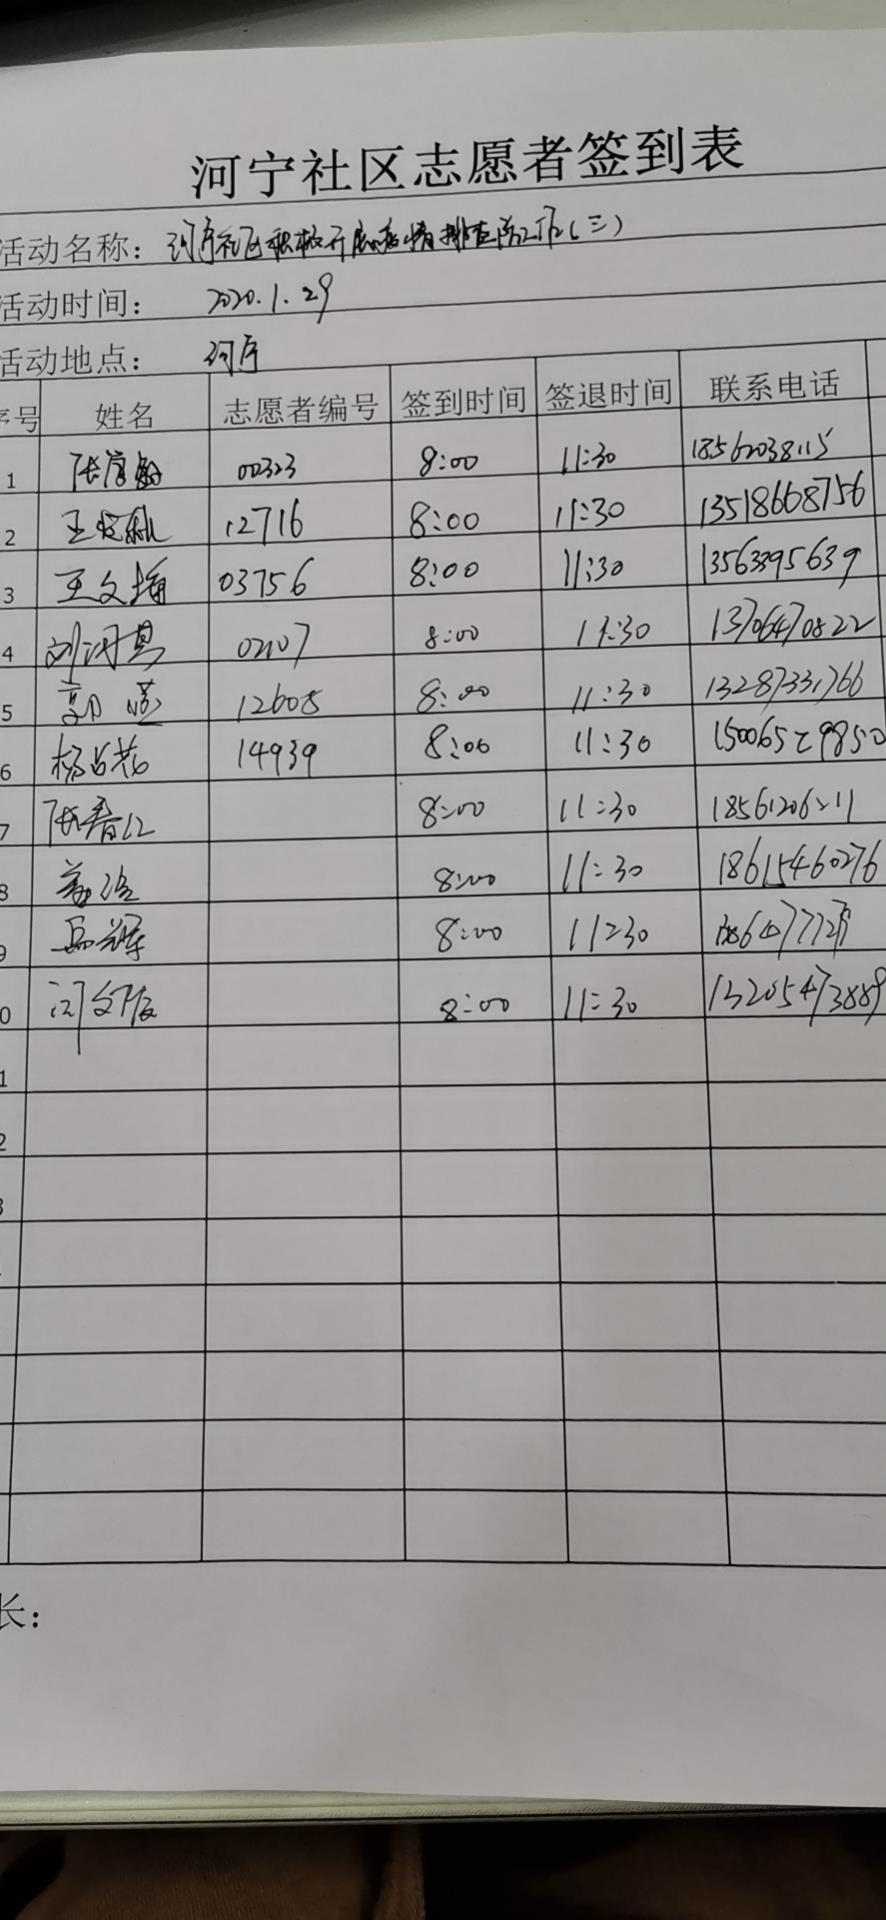 河宁社区志愿者签到表
活动名称：河宁社区积极开展疫情排查防工作（三）
活动时间： 2020.1.29
活动地点： 河宁
序号 姓名 志愿者编号 签到时间 签退时间 联系电话
1 00323 8:00 11:30 18562038115
2 12716 8:00 11:30 13518668756
3 王文 03756 8:00 11:30 13563395639
4 02107 8:00 11:30 13706470822
5 郭 12608 8:00 11:30 13287331766
6 杨 14939 8:00 11:30 15006529850
7 张春江 8:00 11:30 18561206211
8 8:00 11:30 18615460276
9 8:00 11:30
0 闫文 8:00 11:30 13205473889
1
2
3
长：